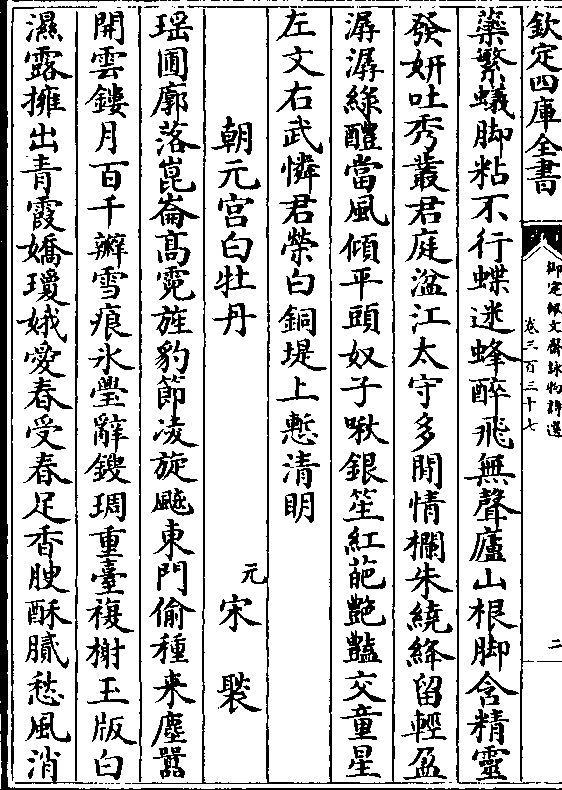 欽定四庫全書
御定佩文齋詠物詩選
卷三百三十七
二
蘂繁蟻脚粘不行蝶迷蜂醉飛無聲廬山根脚含精靈
發妍吐秀叢君庭湓江太守多閒情欄朱繞絳留輕盈
潺潺綠醴當風傾平頭奴子啾銀笙紅葩艷豔交童星
左文右武憐君榮白銅堤上慙清明
朝元宫白牡丹
元宋褧
瑶圃廓落崑崙髙霓旌豹節凌旋飈東門偷種来塵囂
開雲鏤月百千瓣雪痕氷瑩辭鎪琱重臺複榭玉版白
濕露擁出青霞嬌瓊娥愛春受春足香腴酥膩愁風消